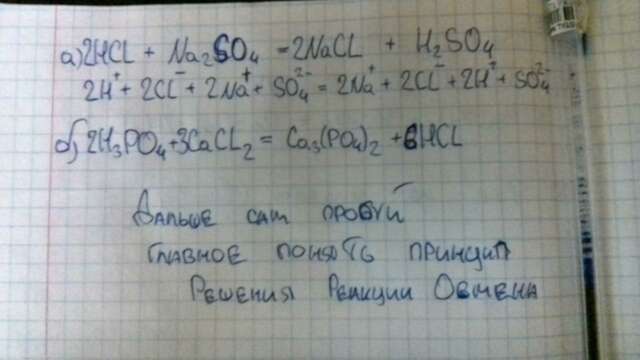 а) 2HCL + Na₂SO₄ = 2NaCL + H₂SO₄
2H⁺ + 2CL⁻ + 2Na⁺ + SO₄²⁻ = 2Na⁺ + 2CL⁻ + 2H⁺ + SO₄²⁻
б) 2H₃PO₄ + 3CaCL₂ = Ca₃(PO₄)₂ + 6HCL
Дальше сам пробуй
главное понять принцип
Решения Реакции Обмена